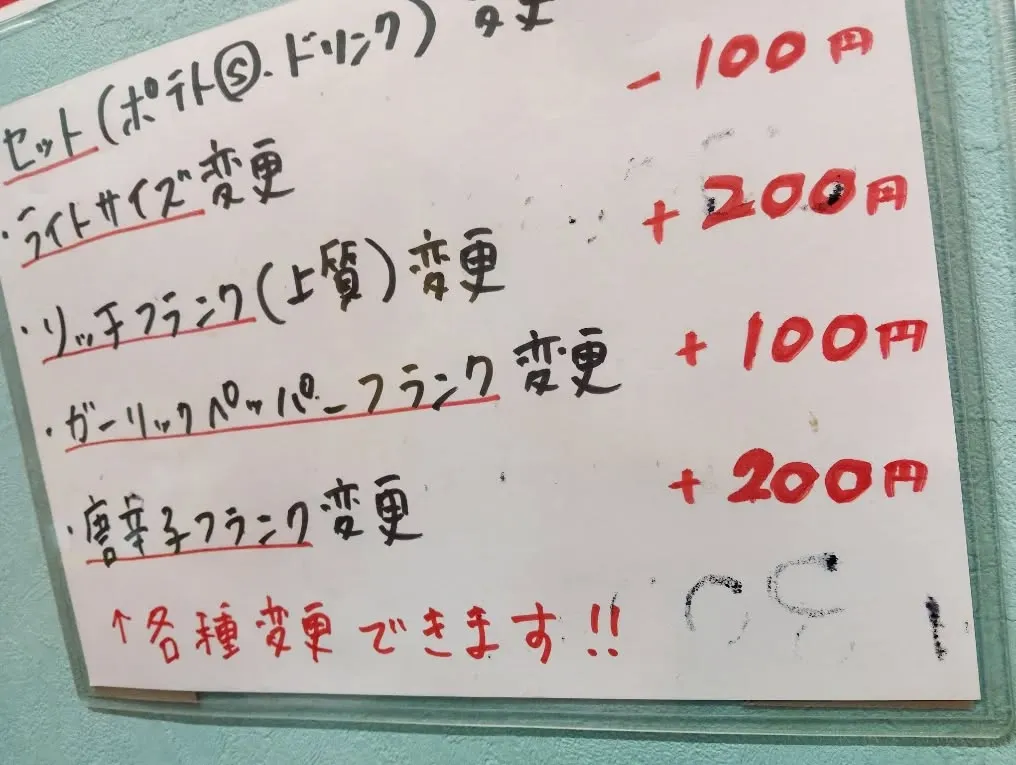 セット(ポテトⓈ・ドリンク)変更
・ライトサイズ変更 -100円
・リッチフランク(上質)変更 +200円
・ガーリックペッパーフランク変更 +100円
・唐辛子フランク変更 +200円
↑各種変更できます!!